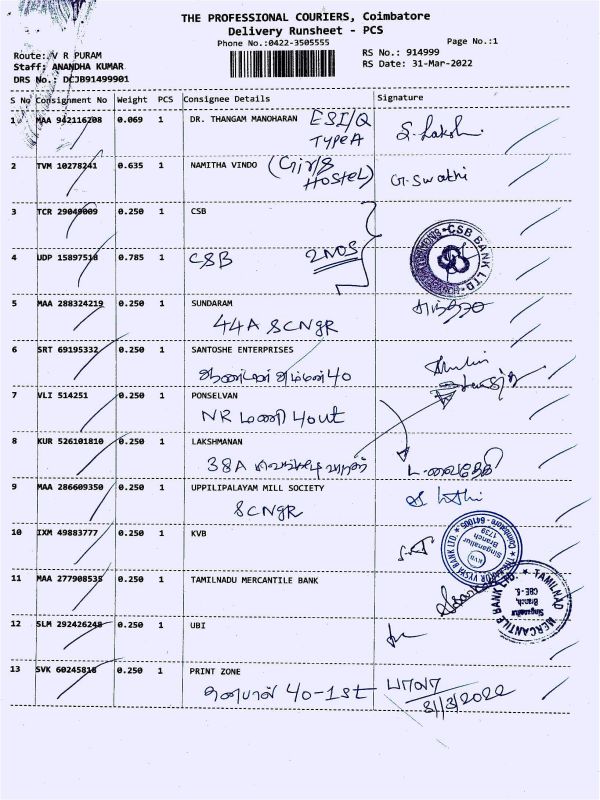 THE PROFESSIONAL COURIERS, Coimbatore
Delivery Runsheet - PCS
Phone No.:0422-3505555
Page No.:1
Route: V R PURAM
RS No.: 914999
Staff: ANANDHA KUMAR
RS Date: 31-Mar-2022
DRS No.: DCJB91499901
S No Consignment No Weight PCS Consignee Details Signature
1 MAA 942116208 0.069 1 DR. THANGAM MANOHARAN ESI/Q
TYPE A
2 TVM 10278241 0.635 1 NAMITHA VINDO (Girls
HOSTEL) G. Swathi
3 TCR 29049009 0.250 1 CSB
4 UDP 15897518 0.785 1 CSB 2NOS
CSB BANK LTD
5 MAA 288324219 0.250 1 SUNDARAM
44A SCNGR
6 SRT 69195332 0.250 1 SANTOSHE ENTERPRISES
40
7 VLI 514251 0.250 1 PONSELVAN
NR மணி 4out
8 KUR 526101810 0.250 1 LAKSHMANAN
38A
9 MAA 286609350 0.250 1 UPPILIPALAYAM MILL SOCIETY
SCNGR
10 IXM 49883777 0.250 1 KVB
THE KARUR VYSYA BANK LTD.
KVB
Singanallur
Branch
1739
Coimbatore - 641005
11 MAA 277908535 0.250 1 TAMILNADU MERCANTILE BANK
TAMILNAD MERCANTILE BANK LTD.
Singanallur
Branch,
CBE - 5.
12 SLM 292426248 0.250 1 UBI
13 SVK 60245818 0.250 1 PRINT ZONE
40-1st
31/3/2022